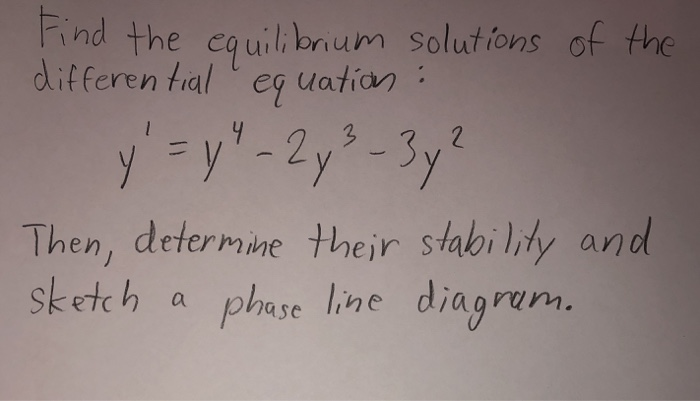 Find the equilibrium solutions of the
differential equation:
y' = y⁴ - 2y³ - 3y²
Then, determine their stability and
sketch a phase line diagram.